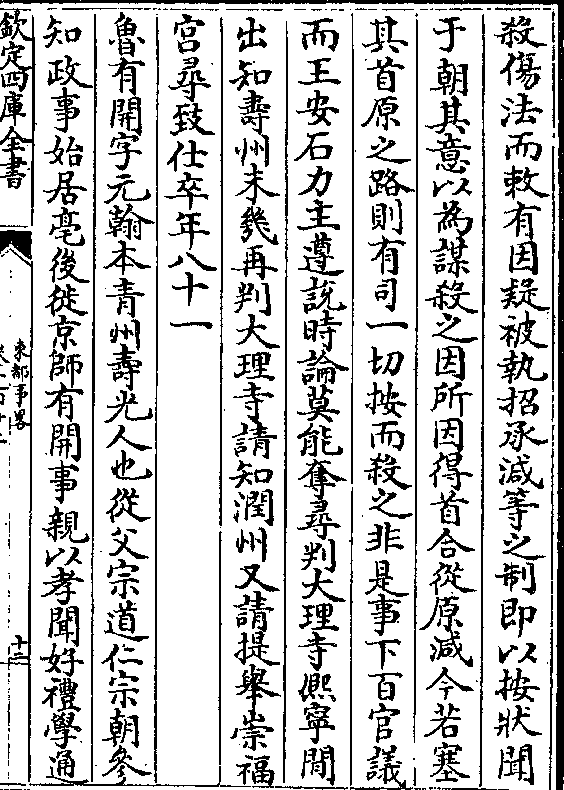 殺傷法而敕有因疑被執招承減等之制即以按狀聞
于朝其意以為謀殺之因所因得首合從原減今若塞
其首原之路則有司一切按而殺之非是事下百官議
而王安石力主遵說時論莫能奪尋判大理寺熈寧間
出知壽州未幾再判大理寺請知潤州又請提舉崇福
宮尋致仕卒年八十一
魯有開字元翰本青州壽光人也從父宗道仁宗朝參
知政事始居亳後徙京師有開事親以孝聞好禮學通
欽定四庫全書
東都事畧
十二